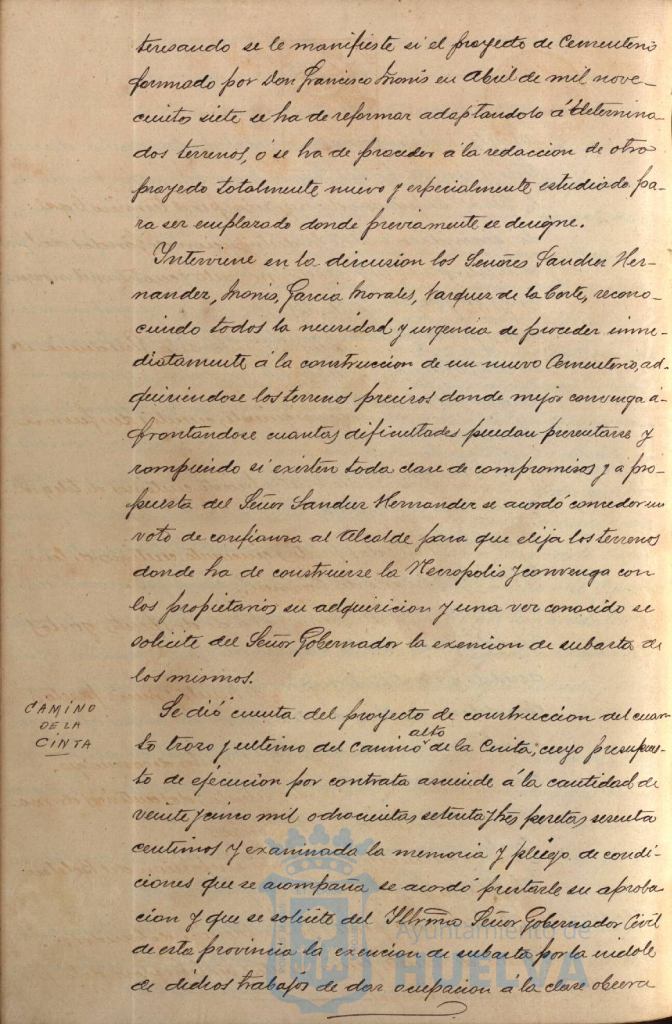 teresando se le manifieste si el proyecto de Cementerio
formado por Don Francisco Monis en Abril de mil nove-
cientos siete se ha de reformar adaptandolo á determina
dos terrenos, ó se ha de proceder á la redaccion de otro
proyecto totalmente nuevo y especialmente estudiado pa-
ra ser emplazado donde previamente se designe.
Interviene en la discusion los Señores Sanchez Her-
nandez, Monis, Garcia Morales, Vazquez de la Corte, recono-
ciendo todos la necesidad y urgencia de proceder inme-
diatamente á la construccion de un nuevo Cementerio, ad-
quiriendose los terrenos precisos donde mejor convenga a-
frontandose cuantas dificultades puedan presentarse y
rompiendo si existen toda clase de compromisos y á pro-
puesta del Señor Sanchez Hernandez se acordó conceder un
voto de confianza al Alcalde para que elija los terrenos
donde ha de construirse la Necropolis y convenga con
los propietarios su adquisicion y una vez conocido se
solicite del Señor Gobernador la exencion de subasta de
los mismos.
CAMINO
DE LA
CINTA
Se dió cuenta del proyecto de construccion del cuar-
to trozo y ultimo del camino alto de la Cinta, cuyo presupues-
to de ejecucion por contrata asciende á la cantidad de
veinte y cinco mil ochocientas setenta y tres pesetas sesenta
centimos y examinada la memoria y pliego de condi-
ciones que se acompaña se acordó prestarle su aproba
cion y que se solicite del Iltrmo Señor Gobernador Civil
de esta provincia la exencion de subasta por la indole
de dichos trabajos de dar ocupacion á la clase obrera
Ayuntamiento de
HUELVA